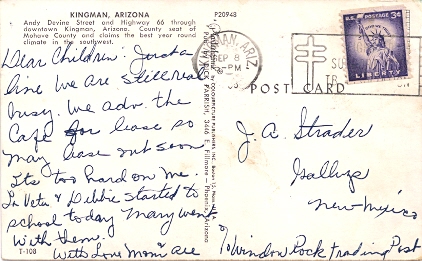 KINGMAN, ARIZONA
Andy Devine Street and Highway 66 through
downtown Kingman, Arizona. County seat of
Mohave County and claims the best year round
climate in the southwest.
P20948
Dear Children: Just a
line we are still real
busy. We adv. the
Cafe for lease so
may lease out soon
Its too hard on me.
& Debbie started to
school today Mary went
with them.
With Love Mom
T-108
KINGMAN, ARIZ.
SEP 8
PM
U.S. POSTAGE 3¢
LIBERTY
POST CARD
J. A. Strader
Gallup
New-Mexico
% Window Rock Trading Post